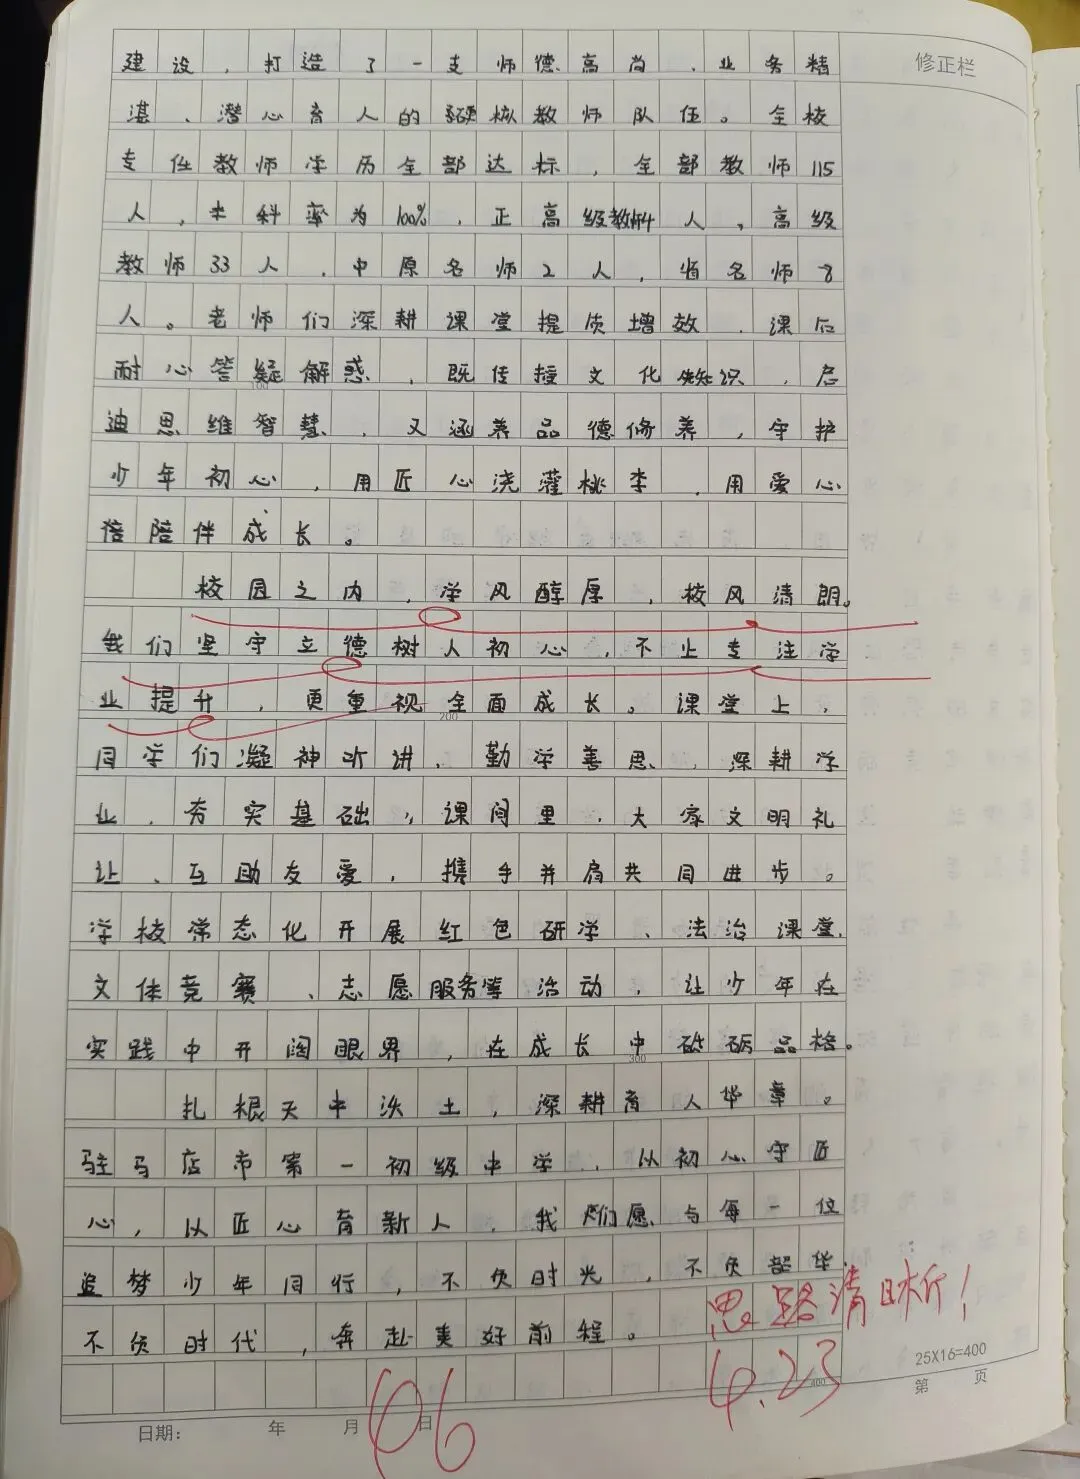 修正栏
建设，打造了一支师德高尚、业务精
湛、潜心育人的硬核教师队伍。全校
专任教师学历全部达标，全部教师115
人，本科率为100%，正高级教师4人，高级
教师33人，中原名师2人，省名师8
人。老师们深耕课堂提质增效，课后
耐心答疑解惑，既传授文化知识，启
100
迪思维智慧，又涵养品德修养，守护
少年初心，用匠心浇灌桃李，用爱心
陪伴成长。
校园之内，学风醇厚，校风清朗。
我们坚守立德树人初心，不止专注学
业提升，更重视全面成长。课堂上，
200
同学们凝神听讲，勤学善思，深耕学
业，夯实基础；课间里，大家文明礼
让、互助友爱，携手并肩共同进步。
学校常态化开展红色研学、法治课堂、
文体竞赛、志愿服务等活动，让少年在
实践中开阔眼界，在成长中砥砺品格。
300
扎根天中沃土，深耕育人华章。
驻马店市第一初级中学，以初心守匠
心，以匠心育新人，我们愿与每一位
追梦少年同行，不负时光，不负韶华，
不负时代，奔赴美好前程。
思路清晰！
4.23
25X16=400
400
第 页
日期： 年 月 日